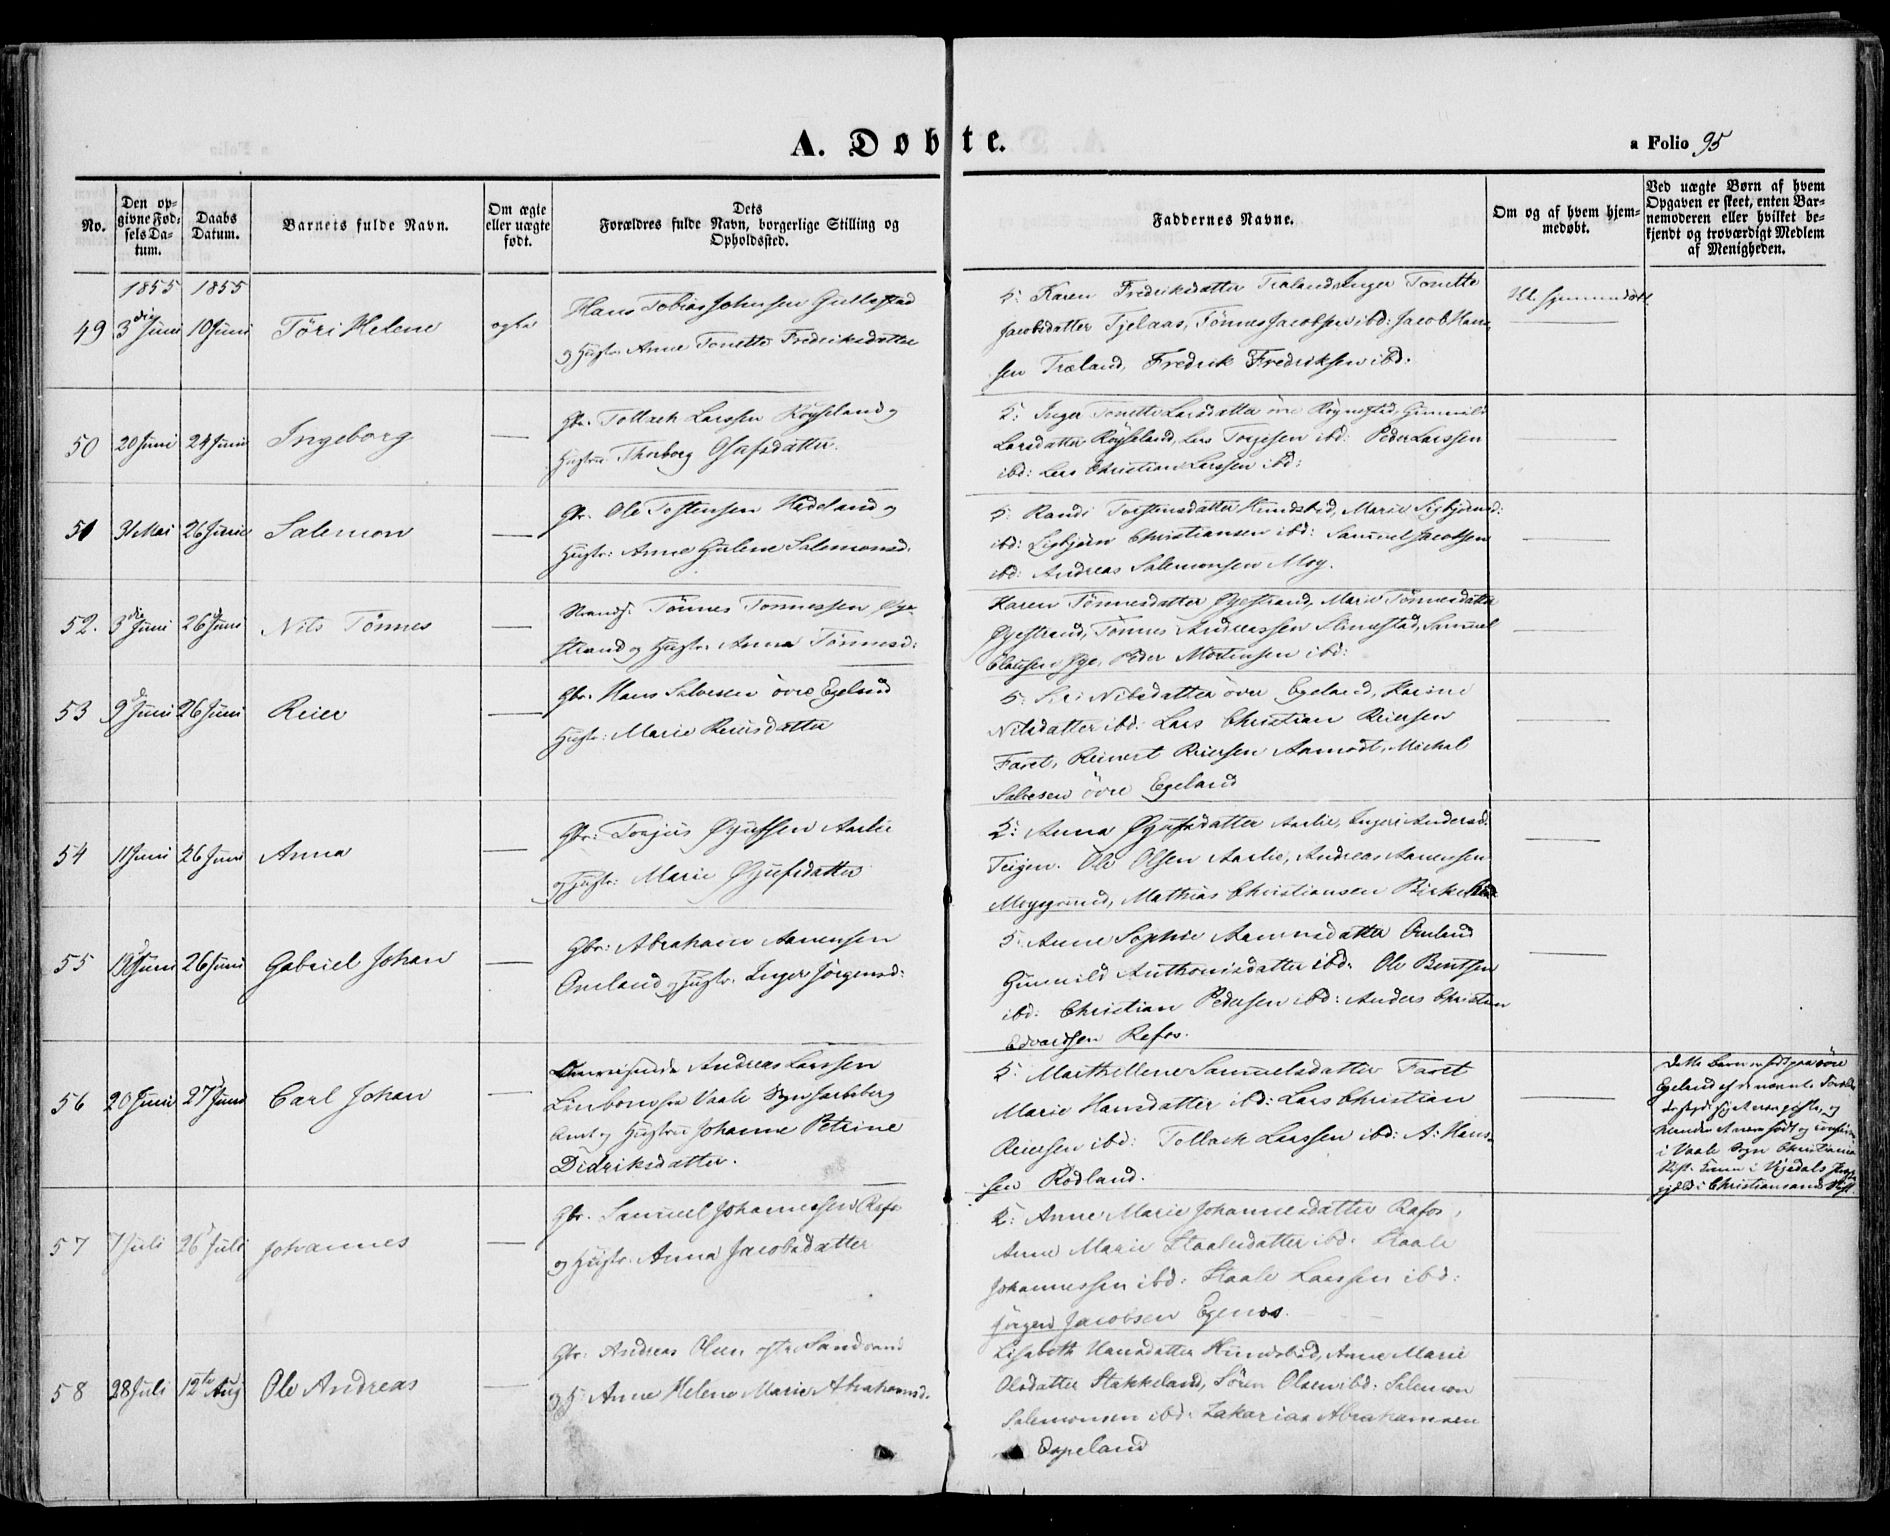 A. Døbte.
a Folio 95
No.
Den op-
givne Fød-
sels Da-
tum.
Daabs
Datum.
Barnets fulde Navn.
Om ægte
eller uægte
født.
Dets
Forældres fulde Navn, borgerlige Stilling og
Opholdssted.
Faddernes Navne.
Om og af hvem hjem-
medøbt.
Ved uægte Børn af hvem
Opgaven er skeet, enten Bar-
nemoderen eller hvilket be-
kjendt og troværdigt Medlem
af Menigheden.
1855 1855
49 3die Juni 10 Juni Töri Helene ægte
Hans Tobias Johnsen
og Hustr. Anne Tonette Fredriksdatter
5: Karen Fredriksdatter Træland, Inger Tonette
Jacobsdatter Tjelaas, Tönnes Jacobsen ibd: Jacob Han-
sen Træland, Fredrik Fredriksen ibd.
50 20 Juni 24 Juni Ingeborg
Gbr. Tollach Larssen Röyseland og
Hustru Thorborg
5: Inger Tonette Larsdatter övre Gunnild
Larsdatter Röyseland, Lars Torgesen ibd: Peder Larssen
ibd: Lars Christian Larssen ibd:
51 31 Mai 26 Juni Salemon
Gbr. Ole Tostensen Hadeland og
Hustr: Anne Gulene Salemonsd.
5: Randi Torstensdatter Hundsbed, Marie
ibd: Christiansen ibd: Samuel Jacobsen
ibd: Andreas Salemonsen Moy.
52. 3die Juni 26 Juni Nils Tönnes
Strands. Tönnes Tönnessen Øye-
strand og Hustr. Anna Tönnesd:
Karen Tönnesdatter Øyestrand, Marie Tönnesdatter
Øyestrand, Tönnes Andreassen Samuel
Clausen Øye, Peder Mortensen ibd:
53 9 Juni 26 Juni Reier
Gbr. Hans Salvesen övre Egeland
Hustr: Marie Reiersdatter
5: Siri Nilsdatter övre Egeland, Karine
Nilsdatter ibd: Lars Christian Reiersen
Faret, Reinert Reiersen Aamodt, Michal
Salvesen övre Egeland
54 11 Juni 26 Juni Anna
Gbr: Torjus Aarlie
og Hustr: Marie
5: Anna Aarlie, Ingeri Andersd.
Teigen. Ole Olsen Aarlie, Andreas Aanensen
Mathias Christiansen
55 19 Juni 26 Juni Gabriel Johan
Gbr: Abraham Aanensen
Omland og Hustr. Inger Jörgensd:
5: Anne Sophie Aanensdatter Omland
Gunnild Anthonisdatter ibd. Ole Bentsen
ibd: Christian Pedersen ibd: Anders Christian
Edvardsen Refos.
56 20 Juni 27 Juni Carl Johan
Andreas Larssen
fra Vaale Sogn Jarlsberg
Amt og Hustru Johanne Petrine
Didriksdatter.
5: Marthe Elene Samuelsdatter Faret
Marie Hansdatter ibd: Lars Christian
Reiersen ibd: Tollach Larssen ibd: A: Han-
sen Rödland.
Dette Barn er födt paa övre
Egeland af
og
födt og
i Vaale Sogn Christiania
Stift
i Christiansands Stift.
57 7 Juli 26 Juli Johannes
Gbr. Samuel Johannessen Refos
og Hustr. Anna Jacobsdatter
5: Anne Marie Johannesdatter Refos,
Anne Marie Staalesdatter ibd: Staale
Johannessen ibd: Staale Larssen ibd:
Jörgen Jacobsen Egenes.
58 28 Juli 12te Aug Ole Andreas
Gbr: Andreas Olsen Sandvand
og H: Anne Helene Marie Abrahamsd.
Lisabeth Hansdatter Hundsbed, Anne Marie
Olsdatter Stakkeland, Sören Olsen ibd: Salemon
Salemonsen ibd: Zakarias Abrahamsen
Espeland